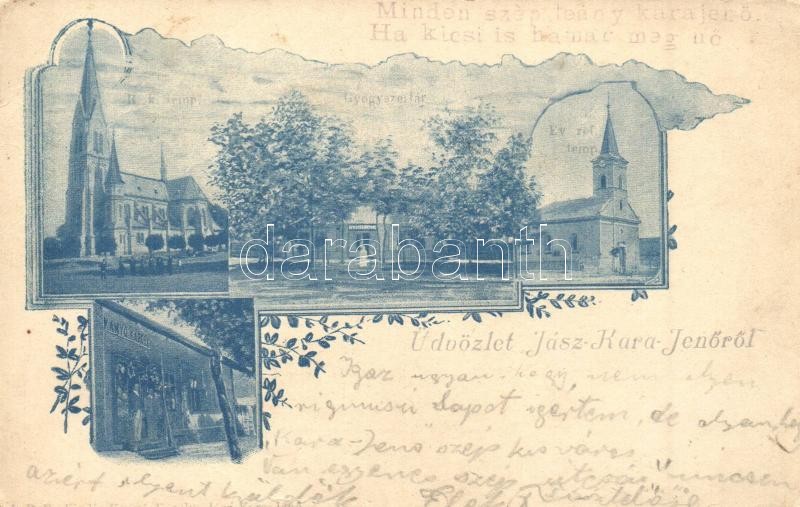 Minden szép leány karajenő.
Ha kicsi is hamar meg nő
R. k. temp.
Gyógyszertár
Ev. ref.
temp.
darabanth
Üdvözlet Jász-Kara-Jenőről
Igaz ugyan hogy nem olyan
lapot igértem, de
Kara-Jenő szép kis város
Van egyenes szép utcája nincsen
azért olyant küldök